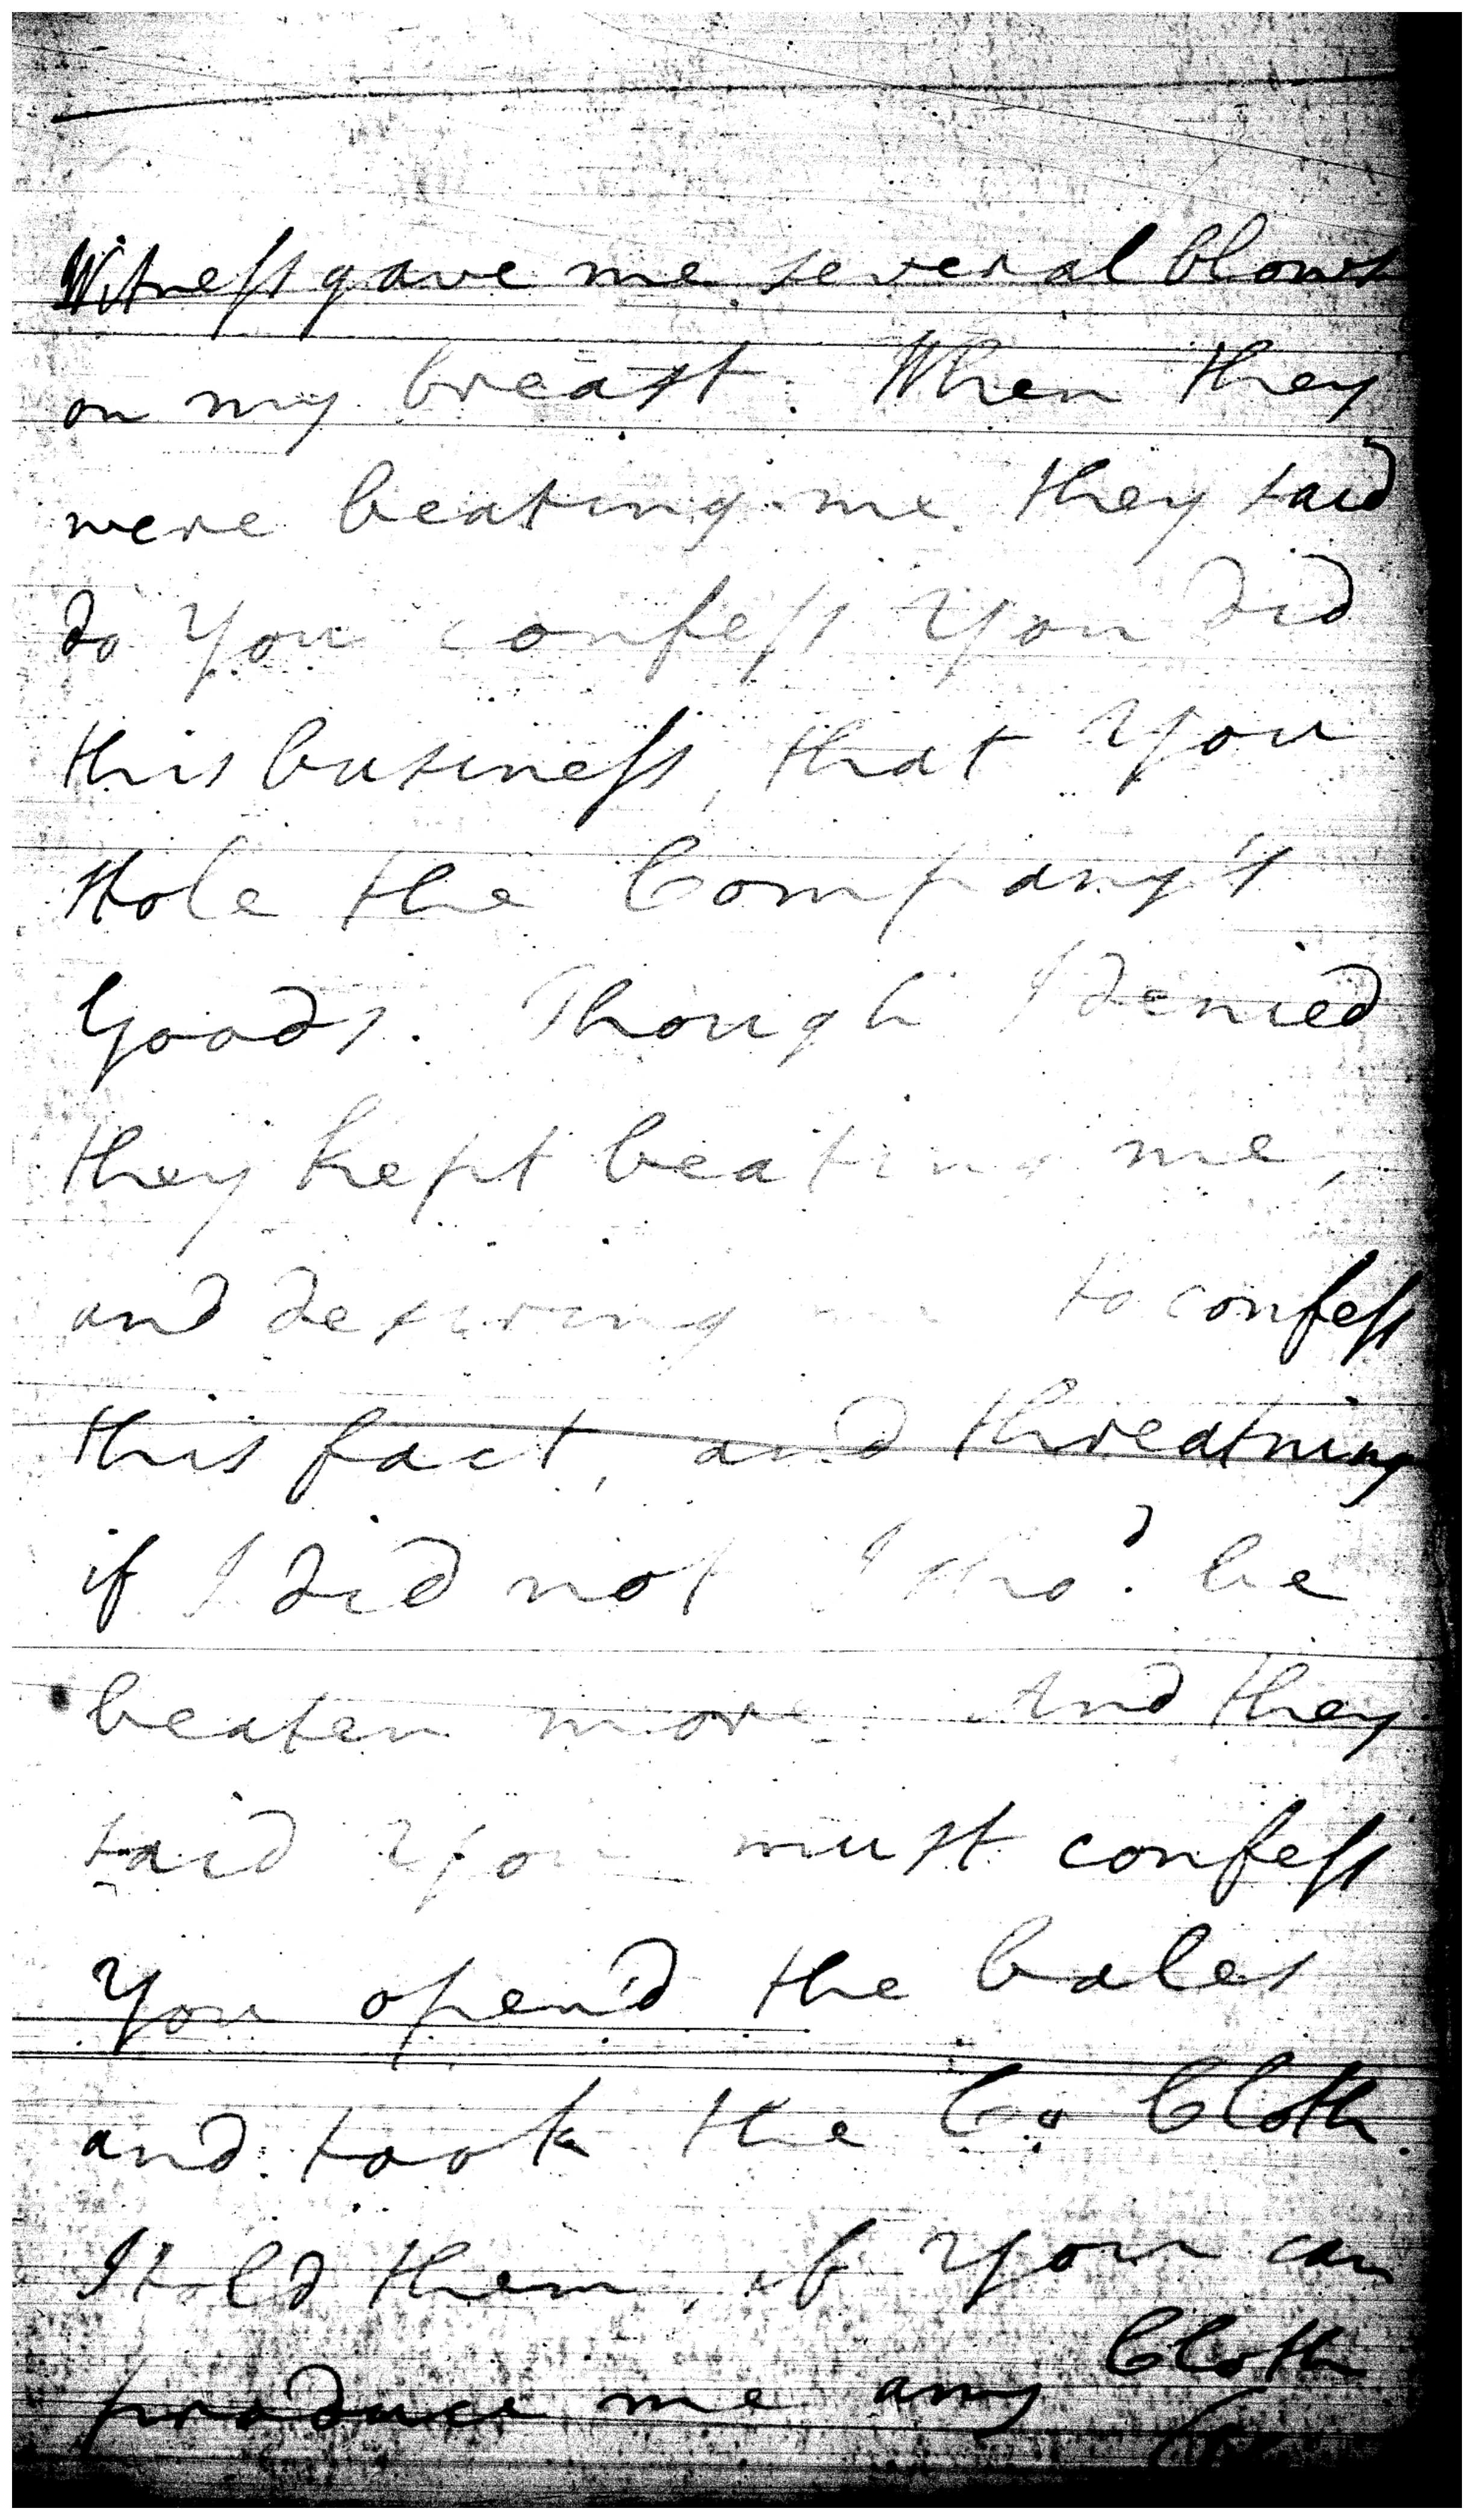 Witness gave me several blows
on my breast. When they
were beating me they said
do You confess You did
this business, that You
stole the Company's
Goods. Though I denied
they kept beating me,
and desiring me to confess
this fact, and threatning
if I did not I sho.d be
beaten more. And they
said You must confess
You open'd the bales
and took the Co Cloth.
I told them, if You can
produce me any Cloth